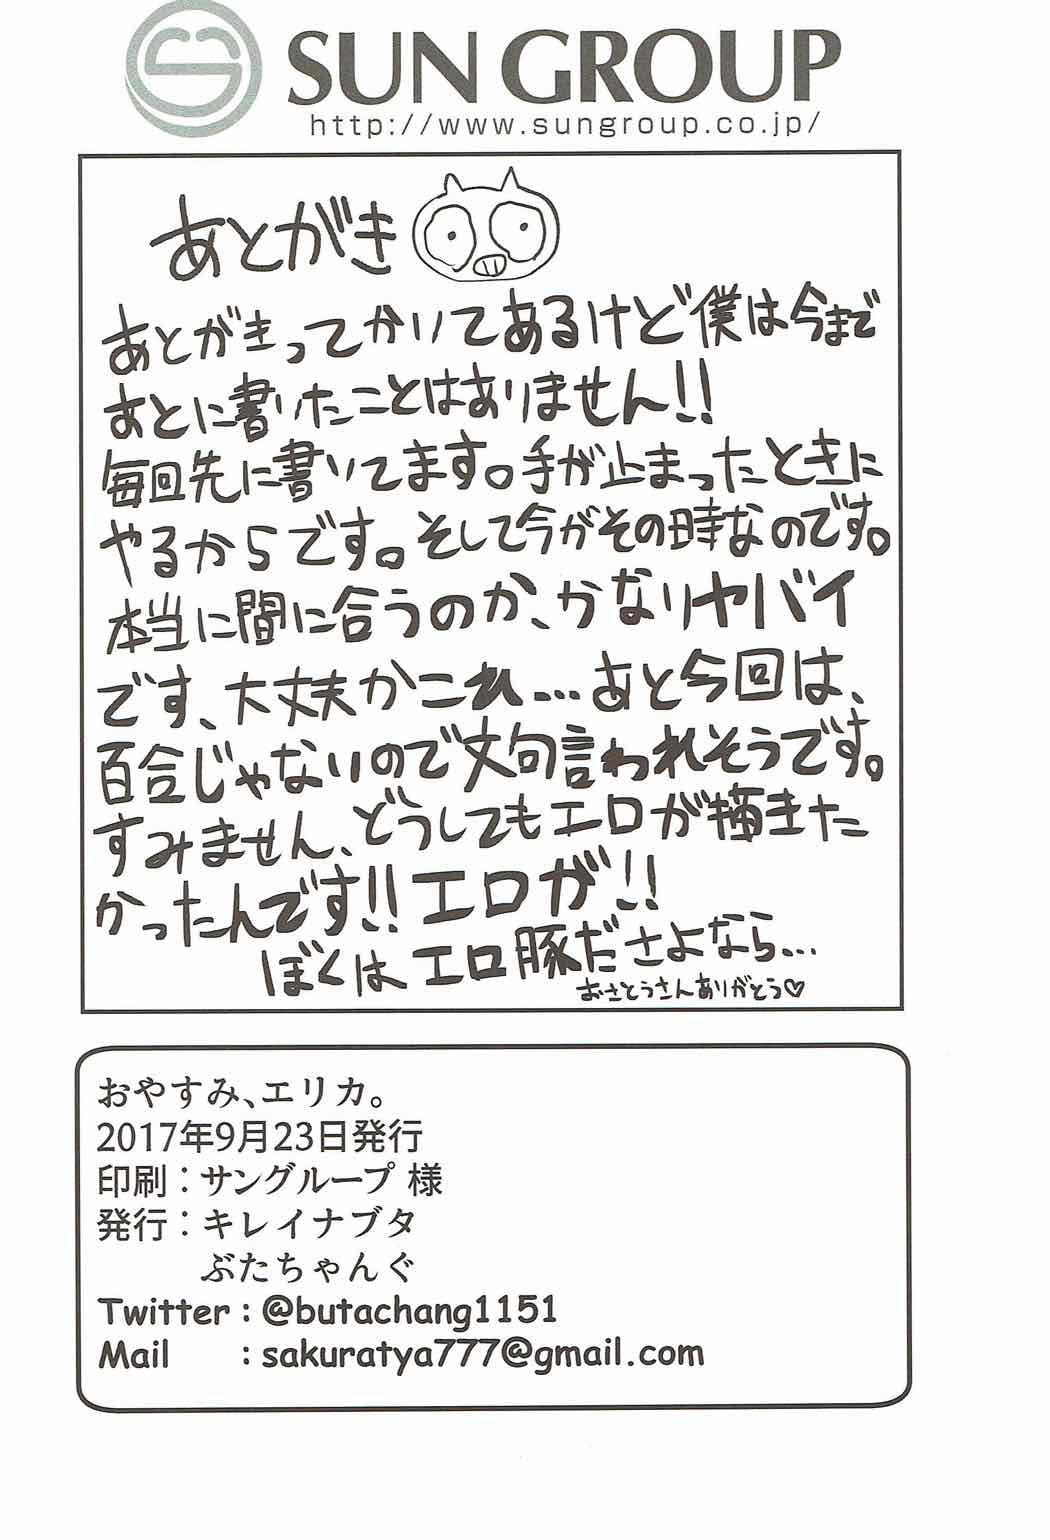 SUN GROUP
http://www.sungroup.co.jp/
あとがき
あとがきってかいてあるけど僕は今まで
あとに書いたことはありません!!
毎回先に書いてます。手が止まったときに
やるからです。そして今がその時なのです。
本当に間に合うのか、かなりヤバイ
です、大丈夫かこれ...あと今回は、
百合じゃないので文句言われそうです。
すみません、どうしてもエロが描きた
かったんです!!エロが!!
ぼくはエロ豚ださよなら...
おさとうさんありがとう♡
おやすみ、エリカ。
2017年9月23日発行
印刷：サングループ 様
発行：キレイナブタ
ぶたちゃんぐ
Twitter : @butachang1151
Mail : sakuratya777@gmail.com